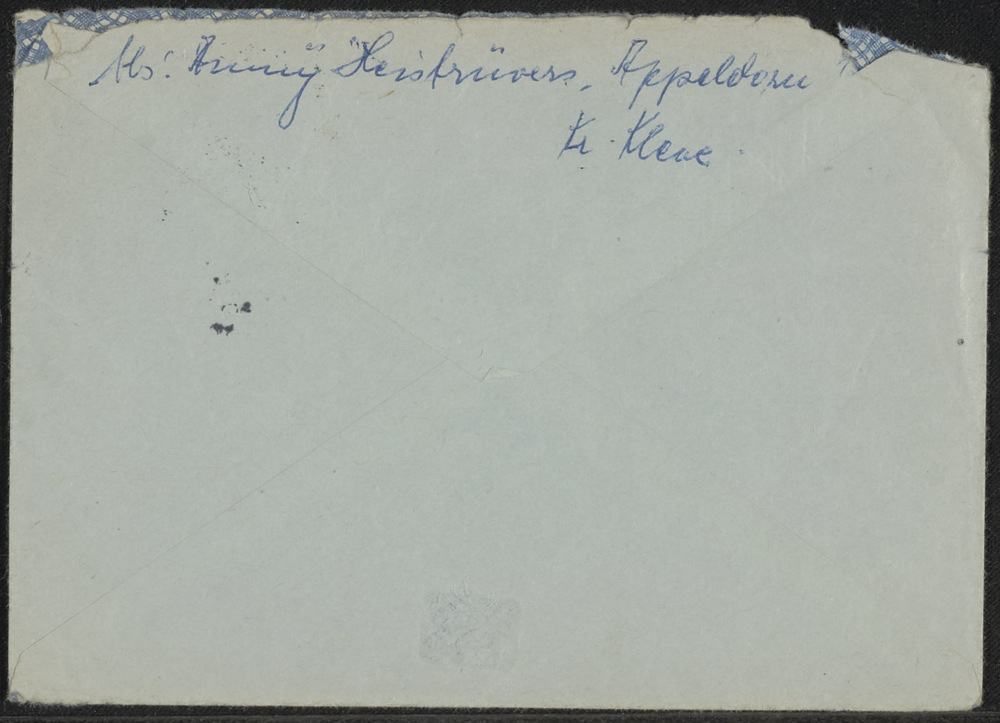 Abs: Änny Heistrüvers, Appeldorn
Kr. Kleve.